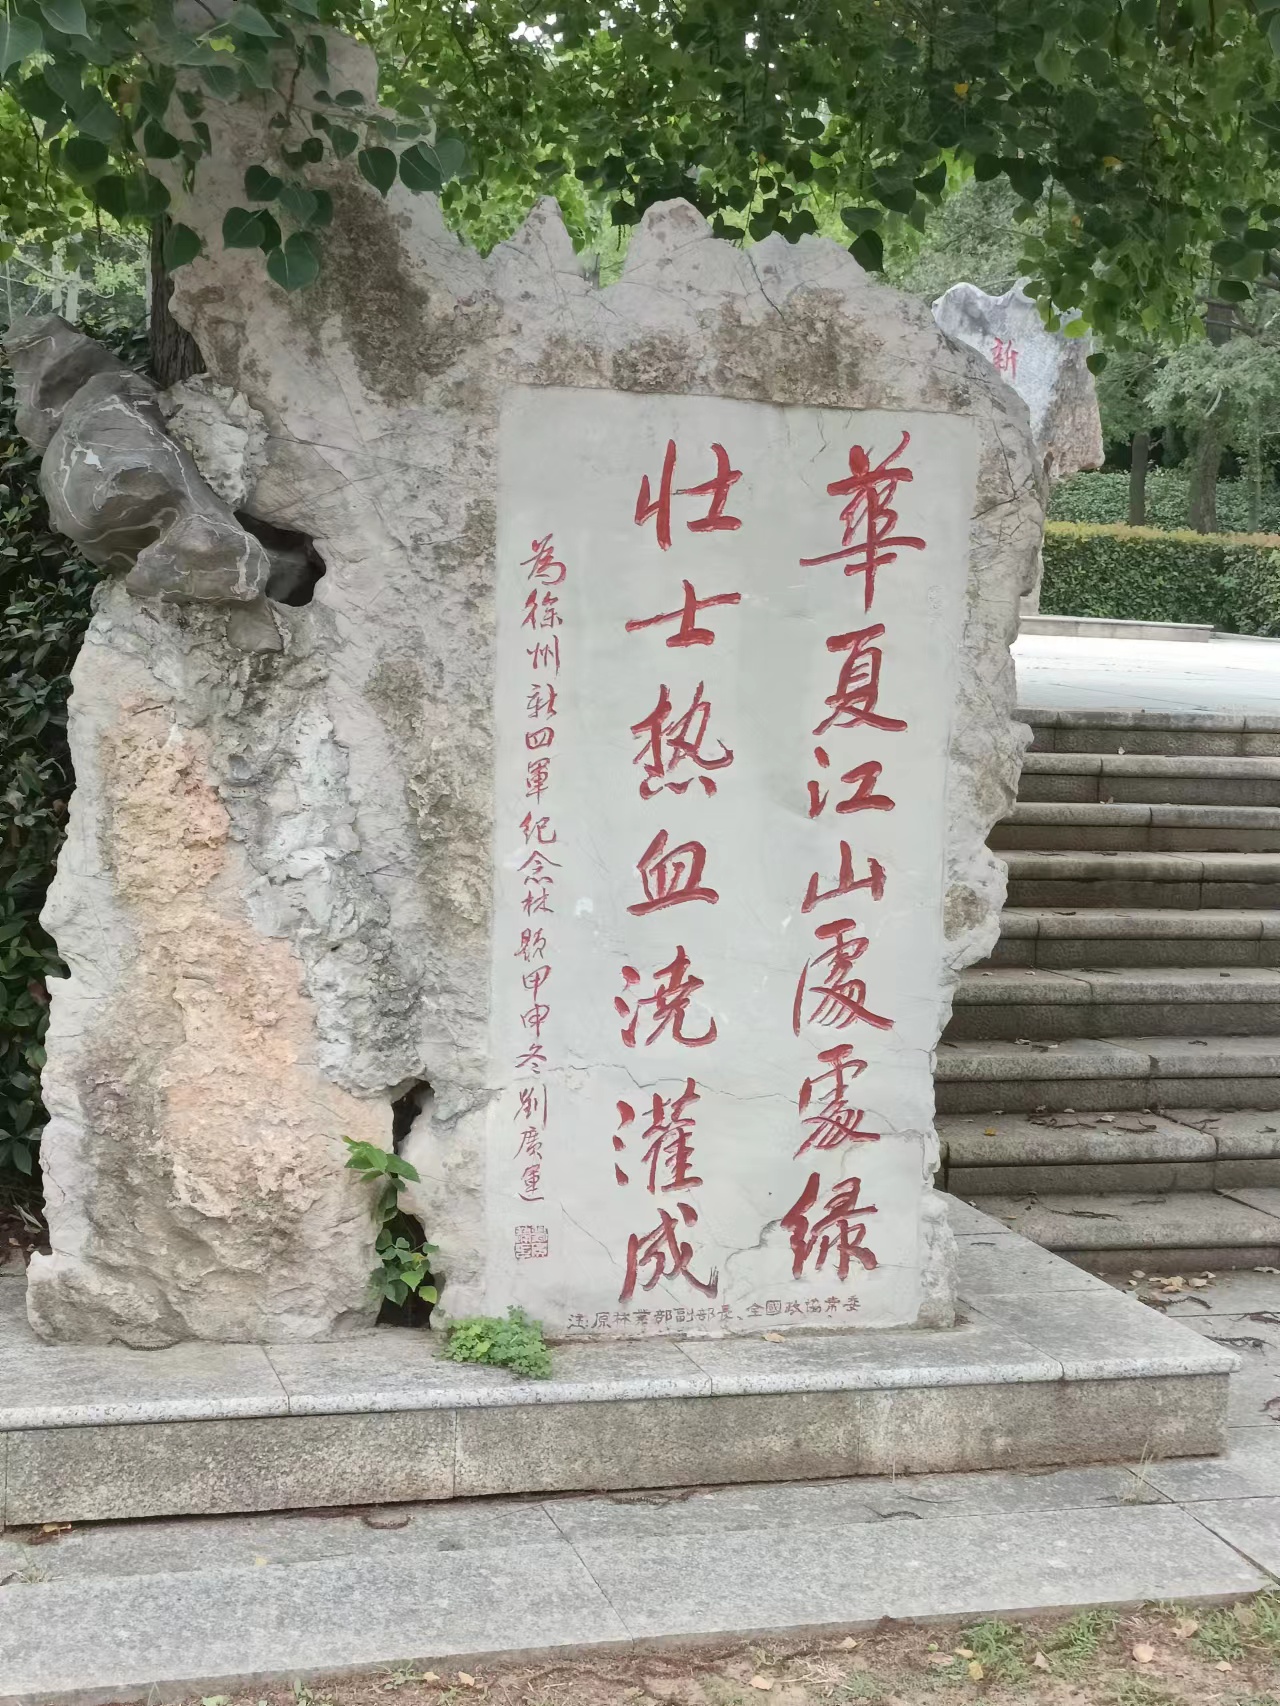 華夏江山處處緑
壮士热血浇灌成
為徐州新四軍纪念林题甲申冬劉廣運
注:原林業部副部長、全國政協常委
新